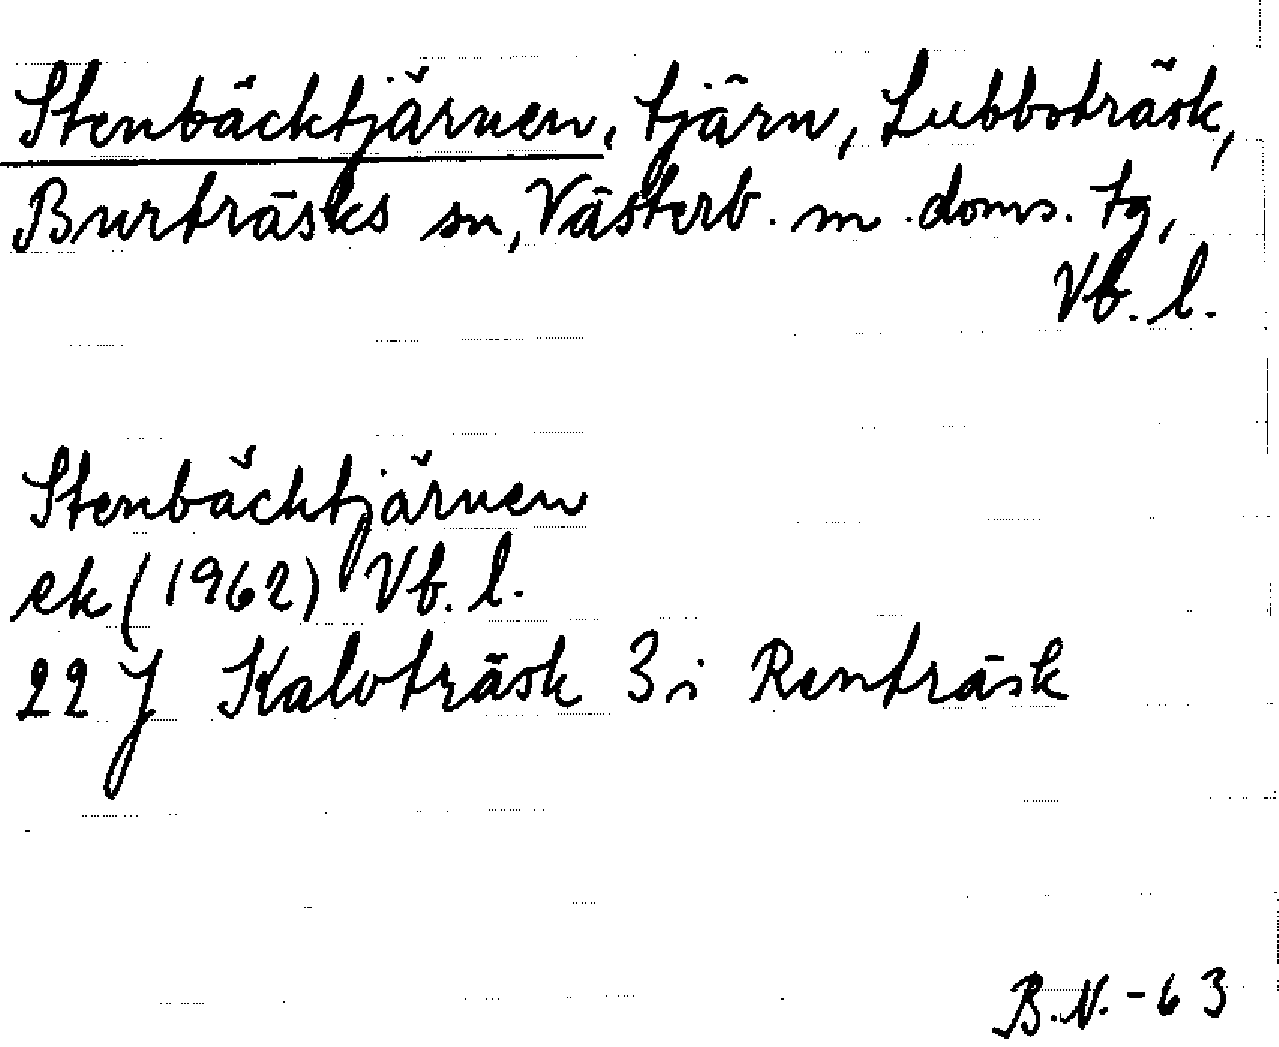 Stenbäcktjärnen, tjärn, Lubboträsk,
Burträsks sn, Västerb. m. doms. tg,
Vb. l.
Stenbäcktjärnen
ek (1962) Vb. l.
22 J Kaloträsk 3 i Renträsk
B.N. -63